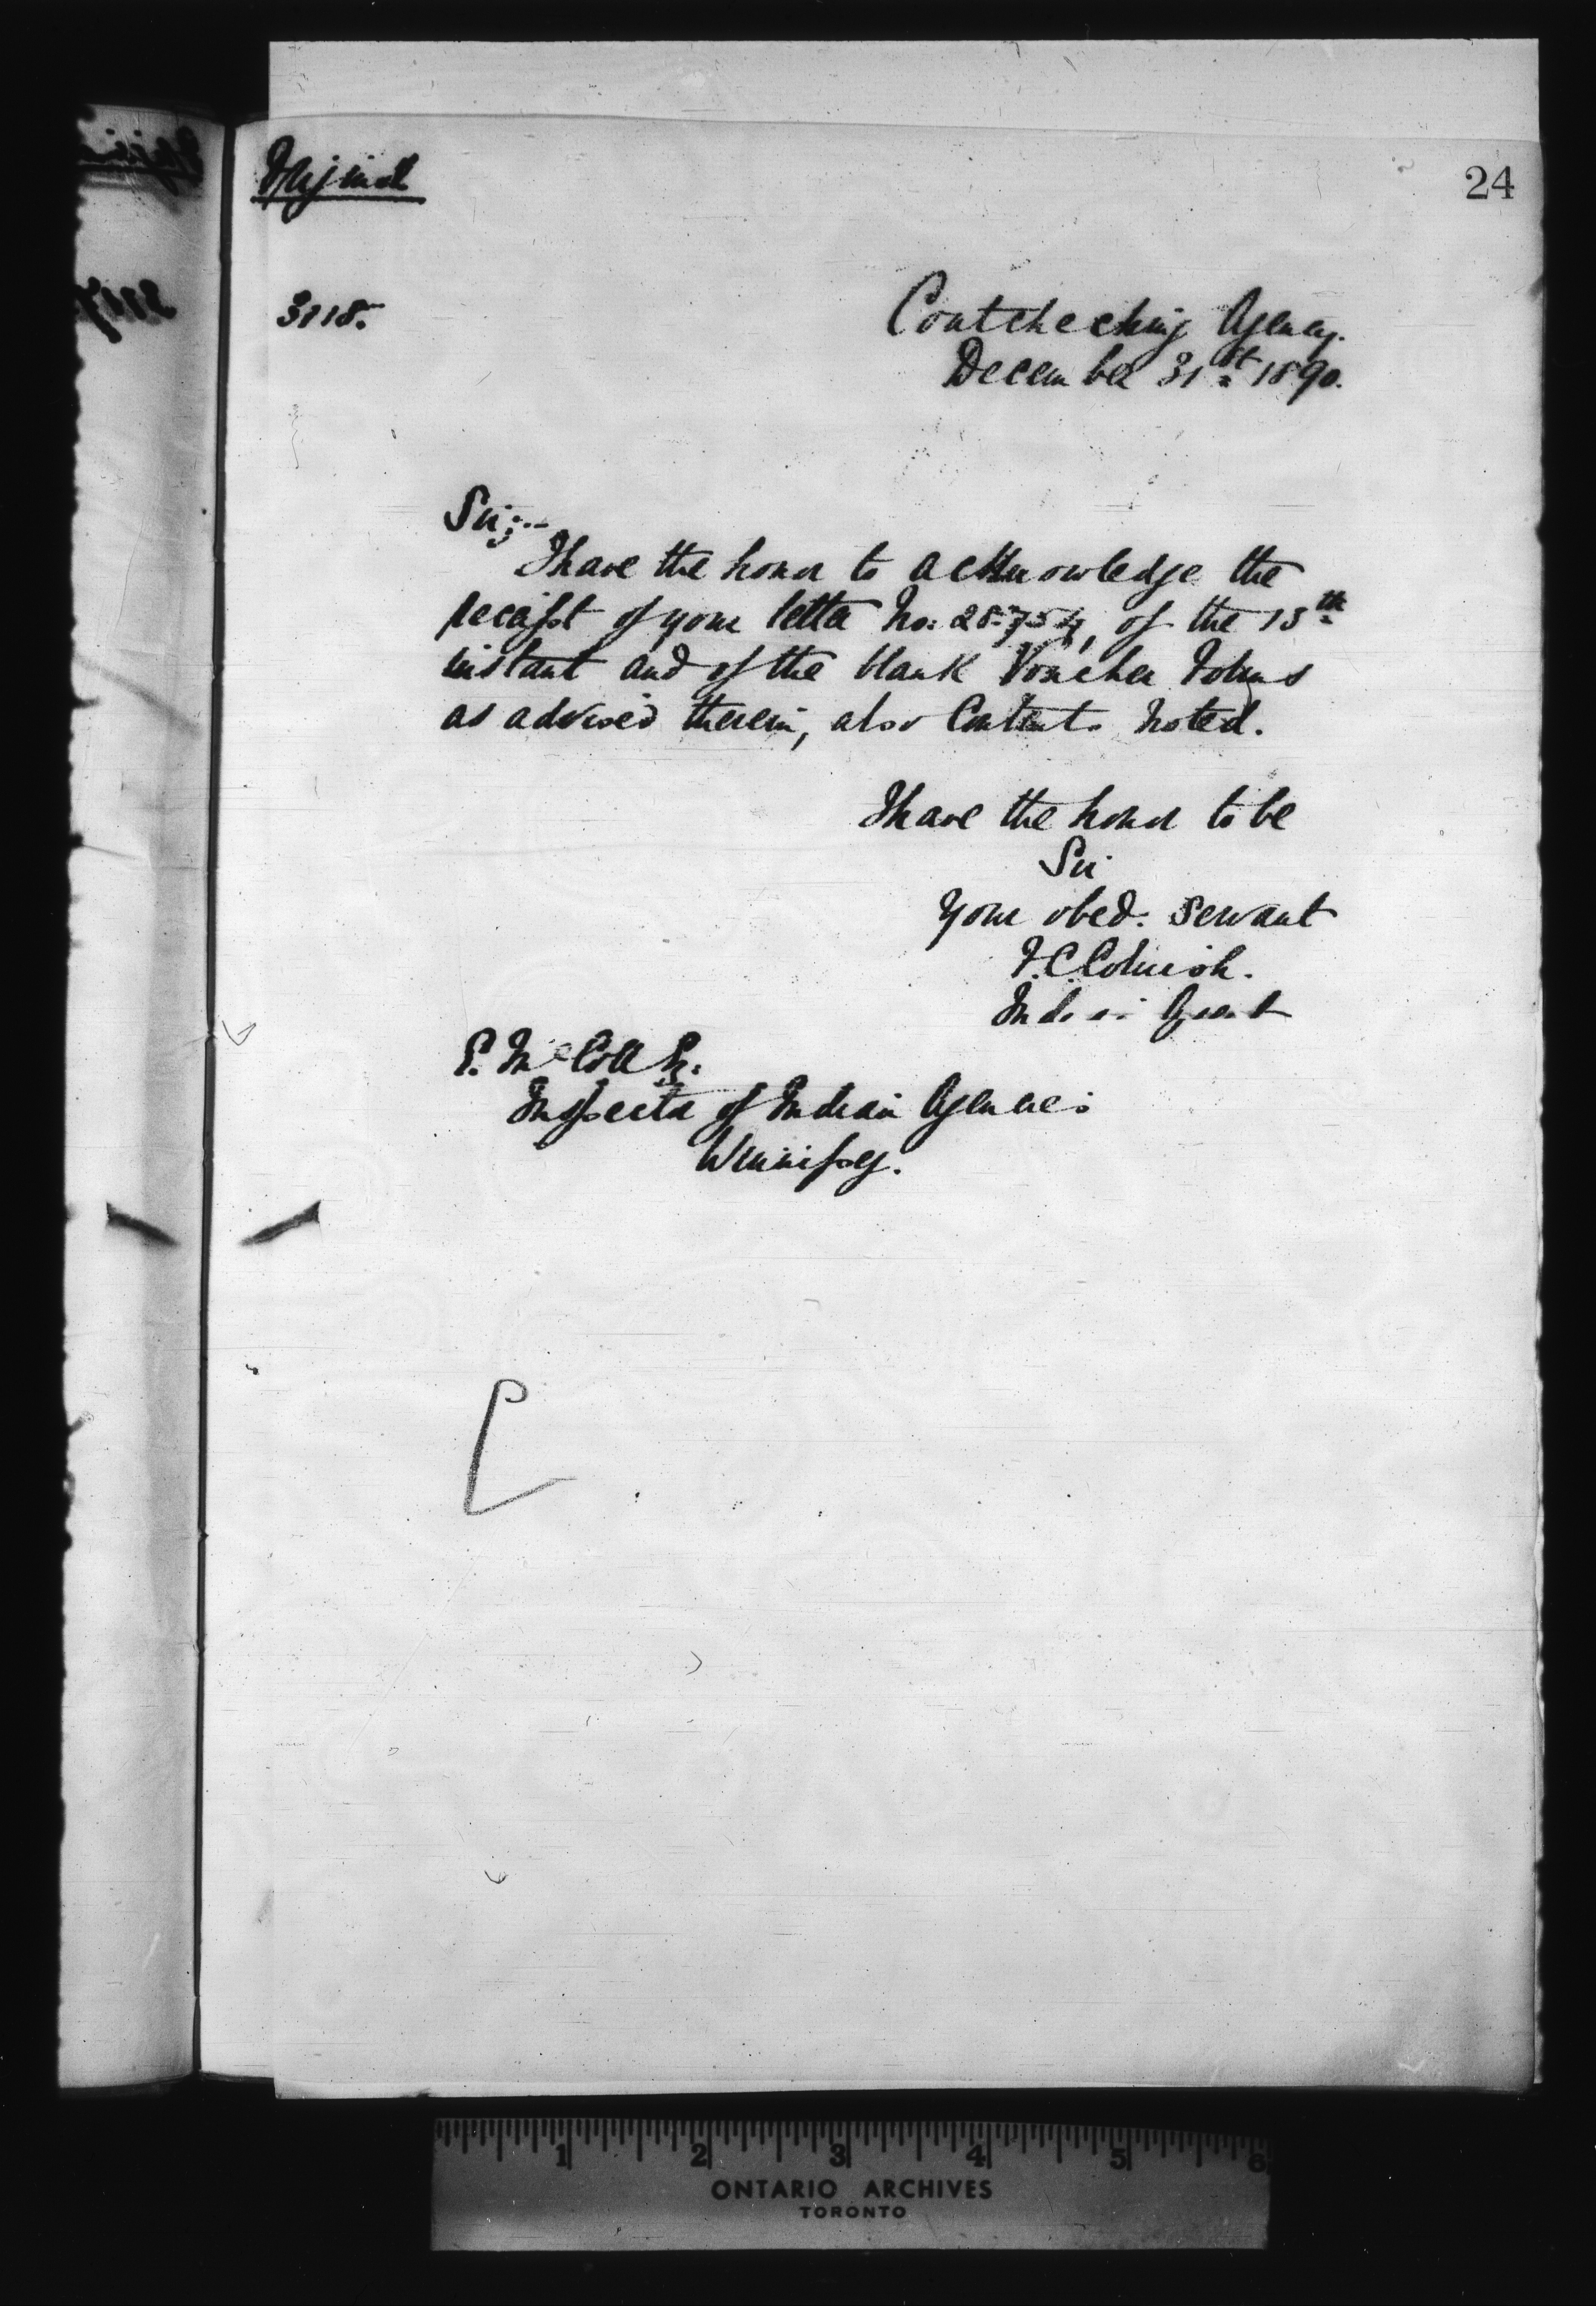 Original
24
3118.
Coutcheching Agency.
December 31st 1890.
Sir:--
I have the honor to acknowledge the
receipt of your letter No: 28754, of the 15th
instant and of the blank Voucher Forms
as advised therein, also Contents noted.
I have the honor to be
Sir
Your obed. Servant
F.C. Cornish.
Indian Agent
E. McColl Esq.
Inspector of Indian Agencies
Winnipeg.
1 2 3 4 5 6
ONTARIO ARCHIVES
TORONTO